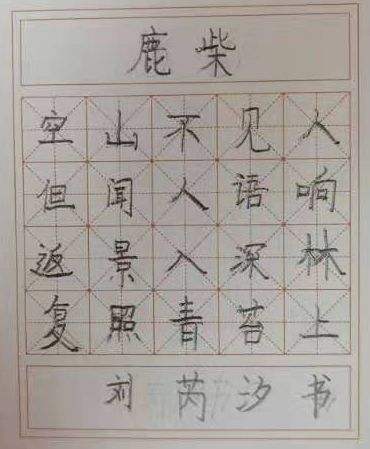 鹿柴
空山不见人
但闻人语响
返景入深林
复照青苔上
刘芮汐书